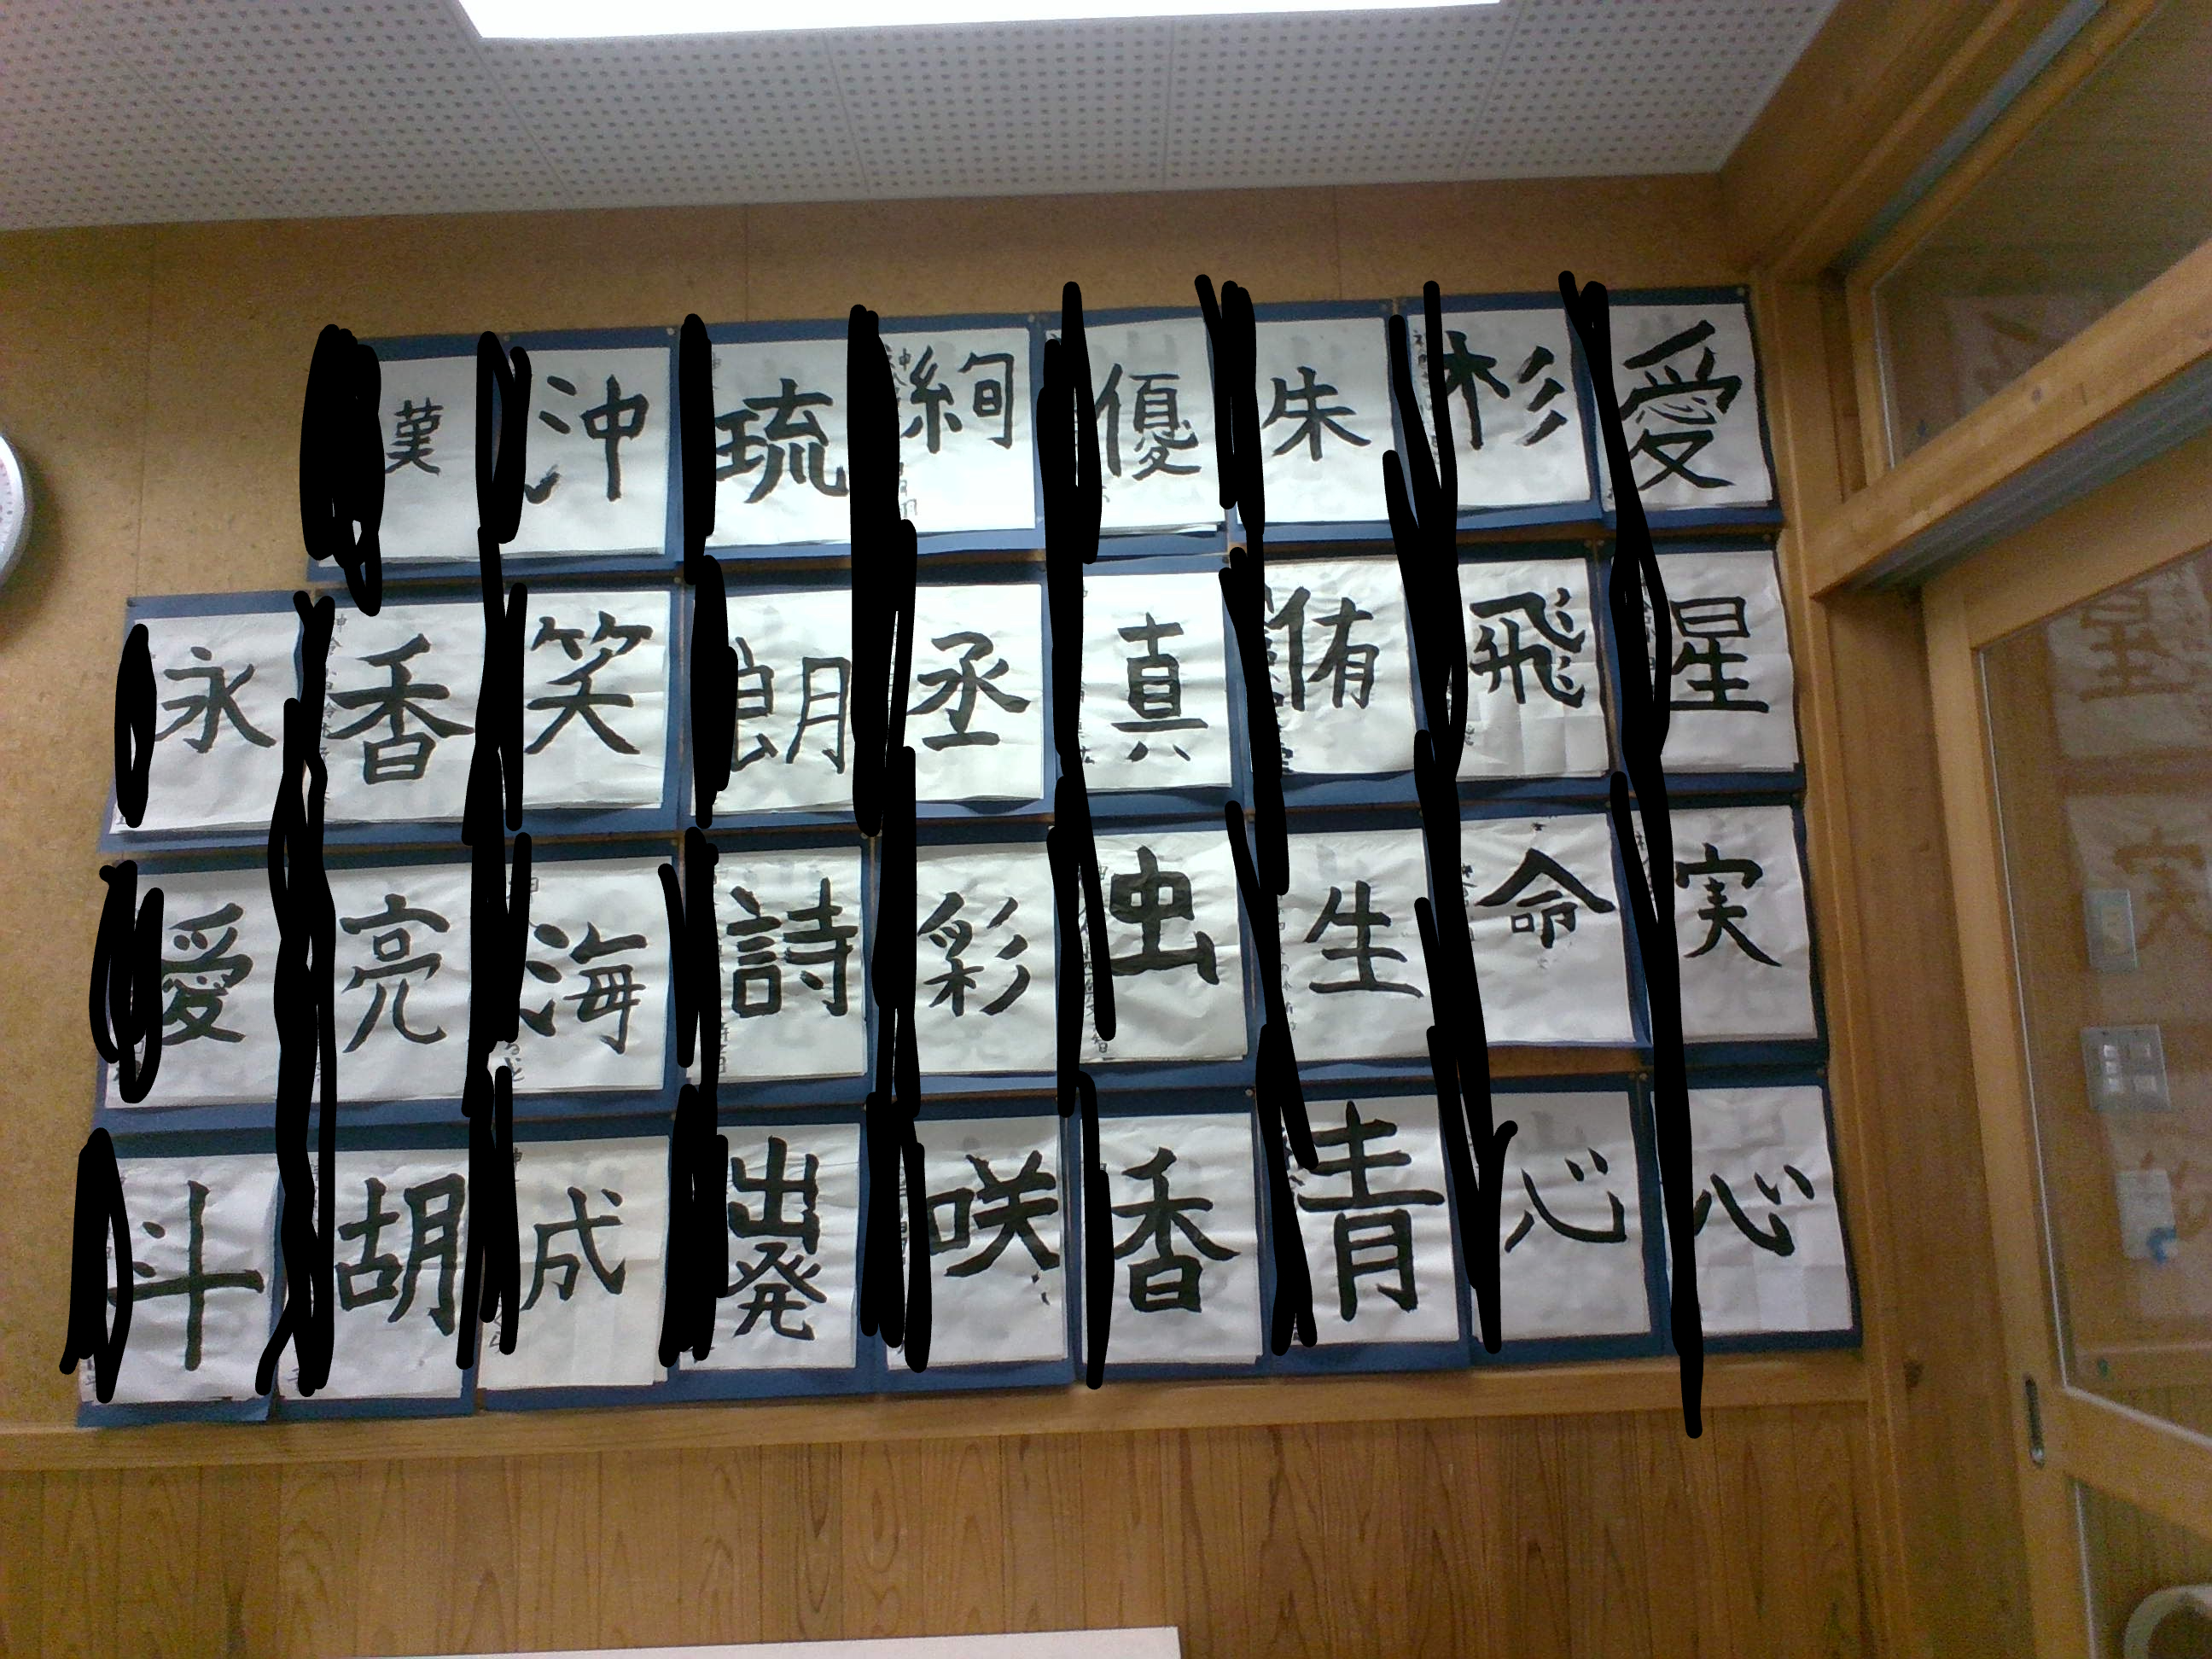 漢 沖 琉 絢 優 朱 杉 愛
永 香 笑 朗 丞 真 侑 飛 星
愛 亮 海 詩 彩 虫 生 命 実
斗 胡 成 出発 咲 香 青 心 心